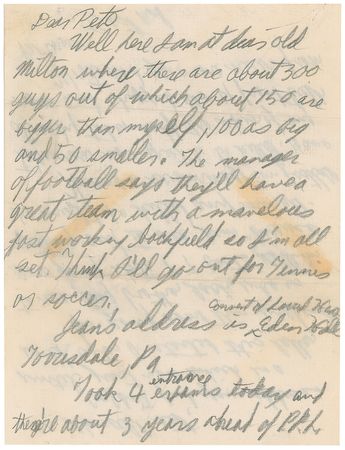 Dear Pete
Well here I am at dear old
Milton where there are about 300
guys out of which about 150 are
bigger than myself, 100 as big
and 50 smaller. The manager
of football says they'll have a
great team with a marvelous
fast working backfield so I'm all
set. Think I'll go out for Tennis
or soccer.
Convent of Sacred Heart
Jean's address is Eden Hall
Torresdale, Pa
entrance
Took 4 exams today and
they're about 3 years ahead of